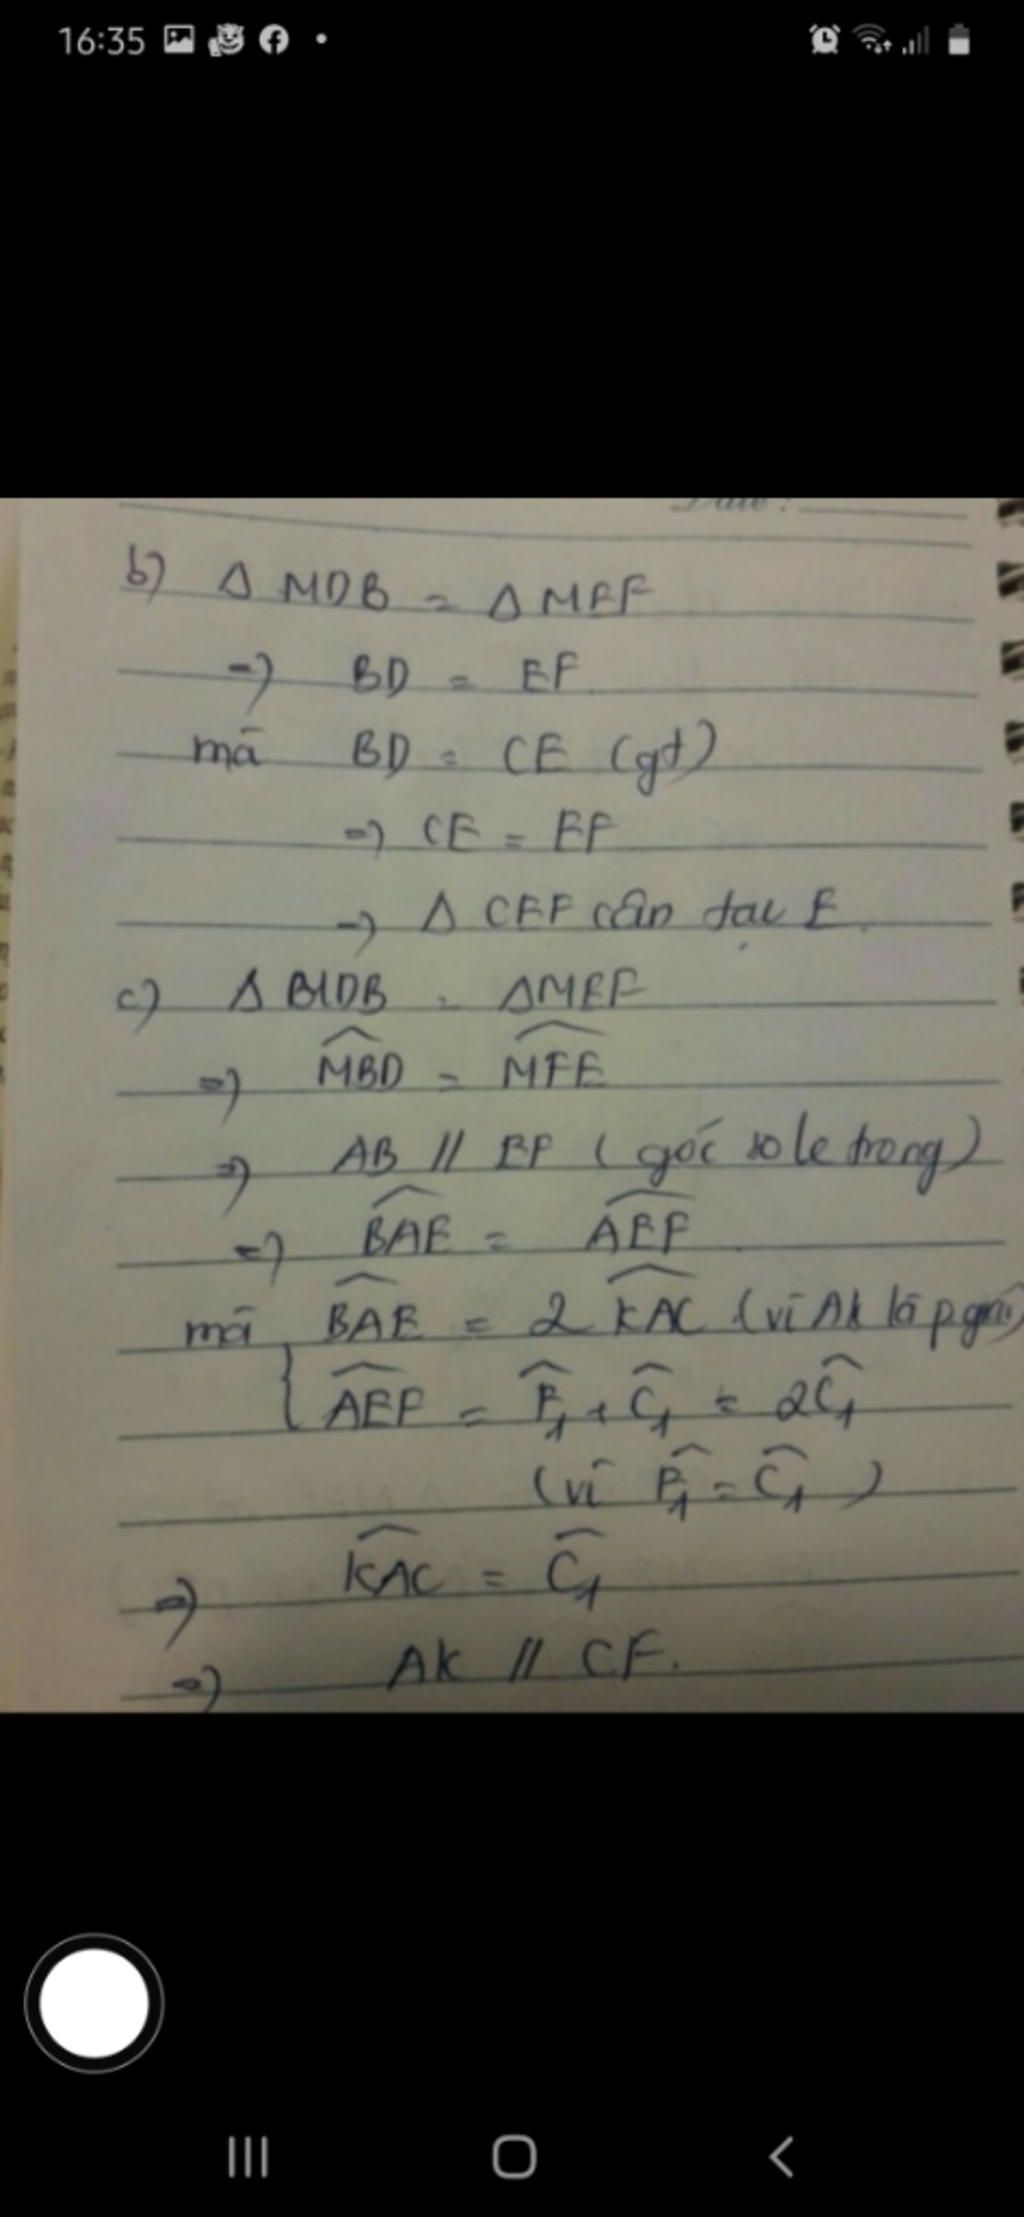 16:35
b) Δ MDB = Δ MEF
=) BD = EF
mà BD = CE (gt)
=) CE = EF
=) Δ CEF cân tại E.
c) Δ MDB = ΔMEF
=) \widehat{MBD} = \widehat{MFE}
=) AB // EF ( góc so le trong)
=) \widehat{BAE} = \widehat{AEF}
mà \widehat{BAE} = 2 \widehat{KAC} (vì AK là p.giác)
{ \widehat{AEF} = \widehat{F_1} + \widehat{C_1} = 2\widehat{C_1}
(vì \widehat{F_1} = \widehat{C_1} )
=) \widehat{KAC} = \widehat{C_1}
=) AK // CF.